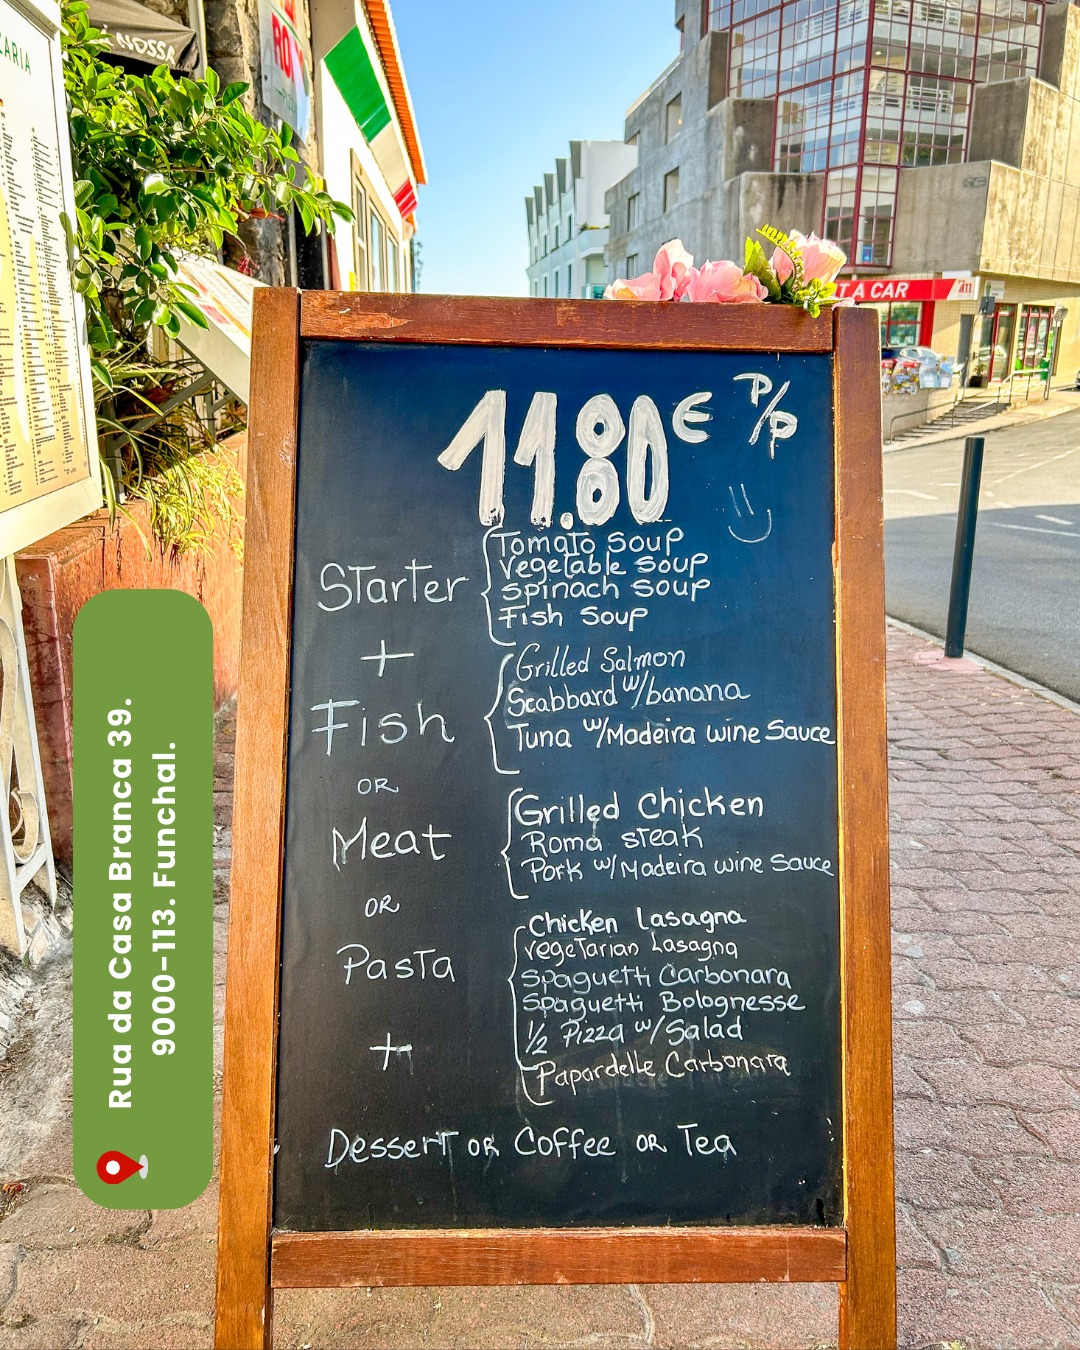 ZARIA
NOSSA
RO
T A CAR
7m
11.80€ P/P
Starter
Tomato Soup
Vegetable Soup
Spinach Soup
Fish Soup
+
Fish
Grilled Salmon
Scabbard w/banana
Tuna w/Madeira wine Sauce
OR
Meat
Grilled Chicken
Roma steak
Pork w/Madeira wine Sauce
OR
Pasta
Chicken Lasagna
vegeTarian Lasagna
Spaguetti Carbonara
Spaguetti Bolognesse
1/2 Pizza w/Salad
Papardelle Carbonara
+
Dessert OR Coffee OR Tea
Rua da Casa Branca 39.
9000-113. Funchal.